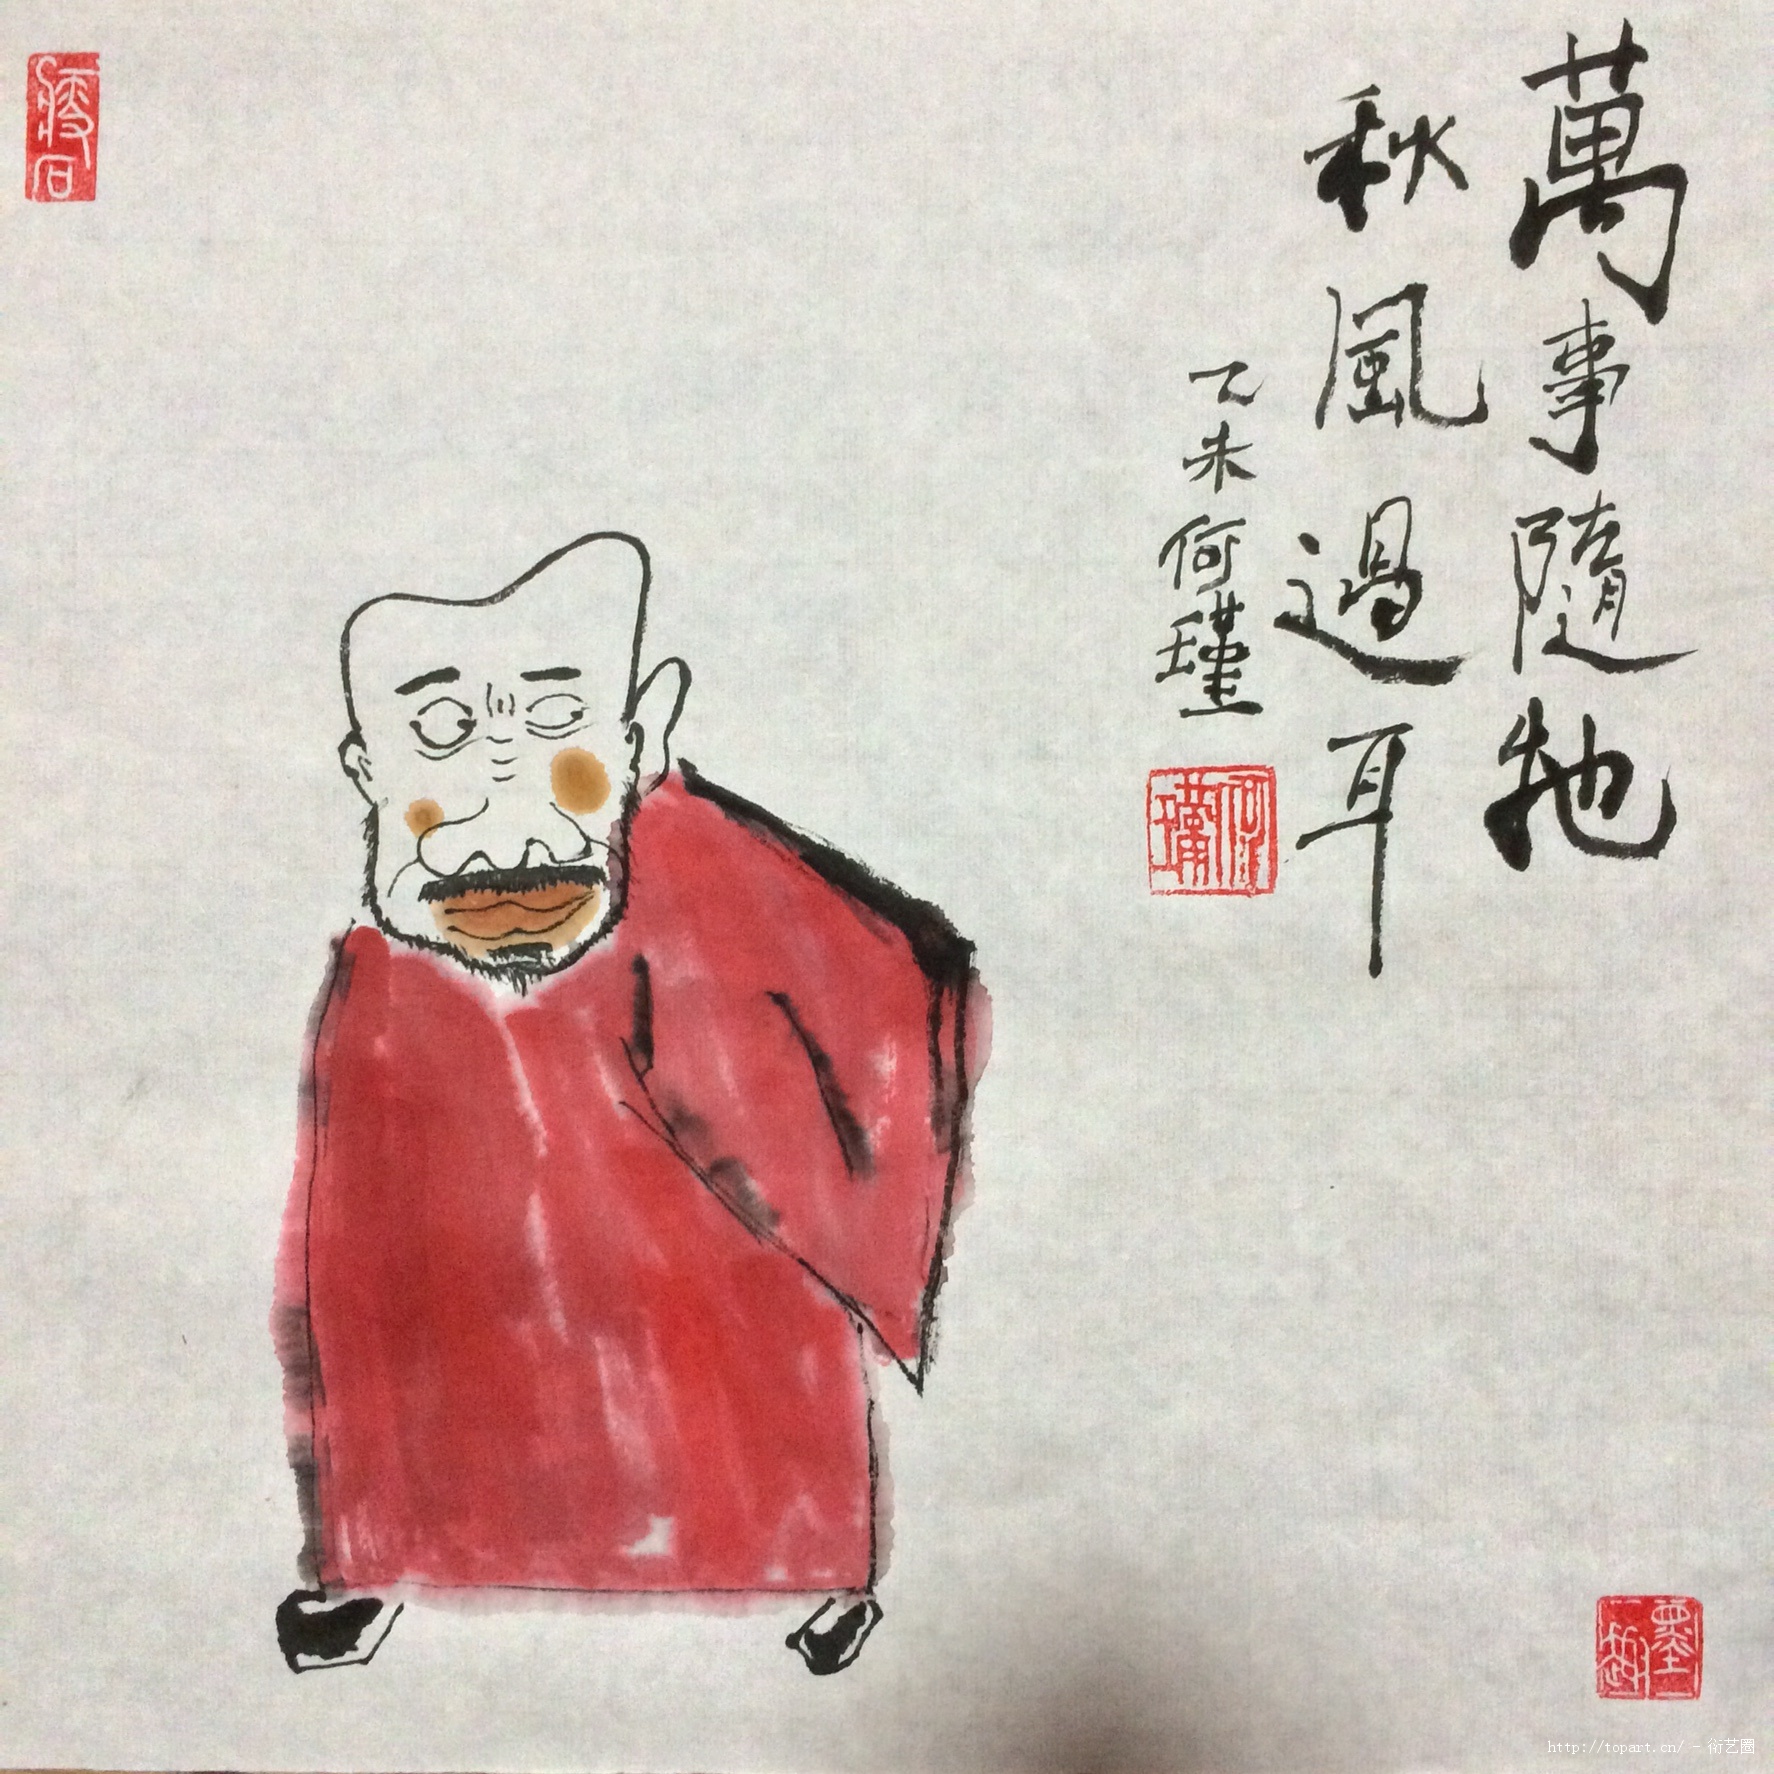 萬事隨牠
秋風過耳
乙未何瑾
何瑾
墨趣
http://topart.cn/ - 衍艺圈